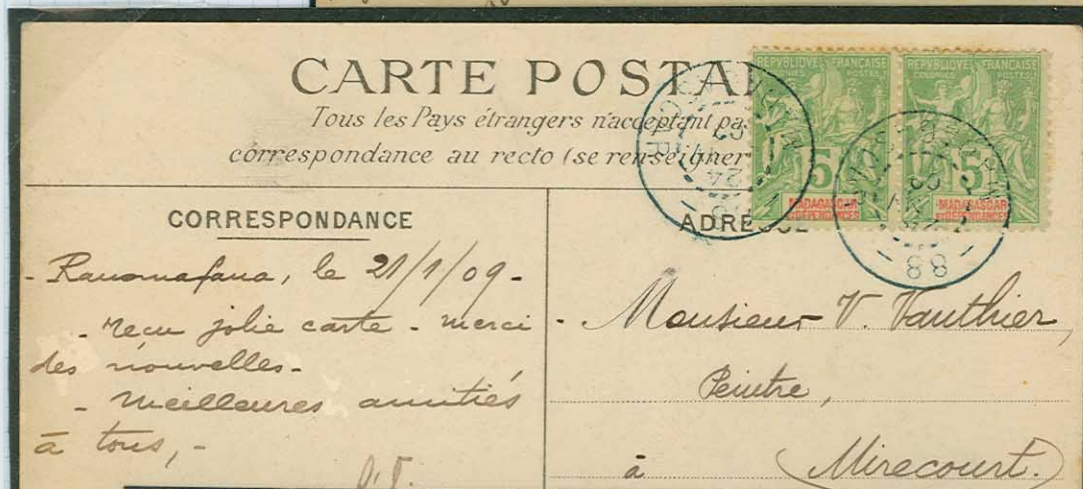 CARTE POSTA
Tous les Pays étrangers n'acceptent pas
correspondance au recto (se renseigner
REPVBLIQVE FRANÇAISE
COLONIES POSTES
5
MADAGASCAR
ET DÉPENDANCES
REPVBLIQVE FRANÇAISE
COLONIES POSTES
5
MADAGASCAR
ET DÉPENDANCES
CORRESPONDANCE
- Ranomafana, le 21/1/09 -
- reçu jolie carte - merci
des nouvelles -
- Meilleures amitiés
à tous, -
ADRESSE
- Monsieur V. Vauthier,
Peintre,
à (Mirecourt.)